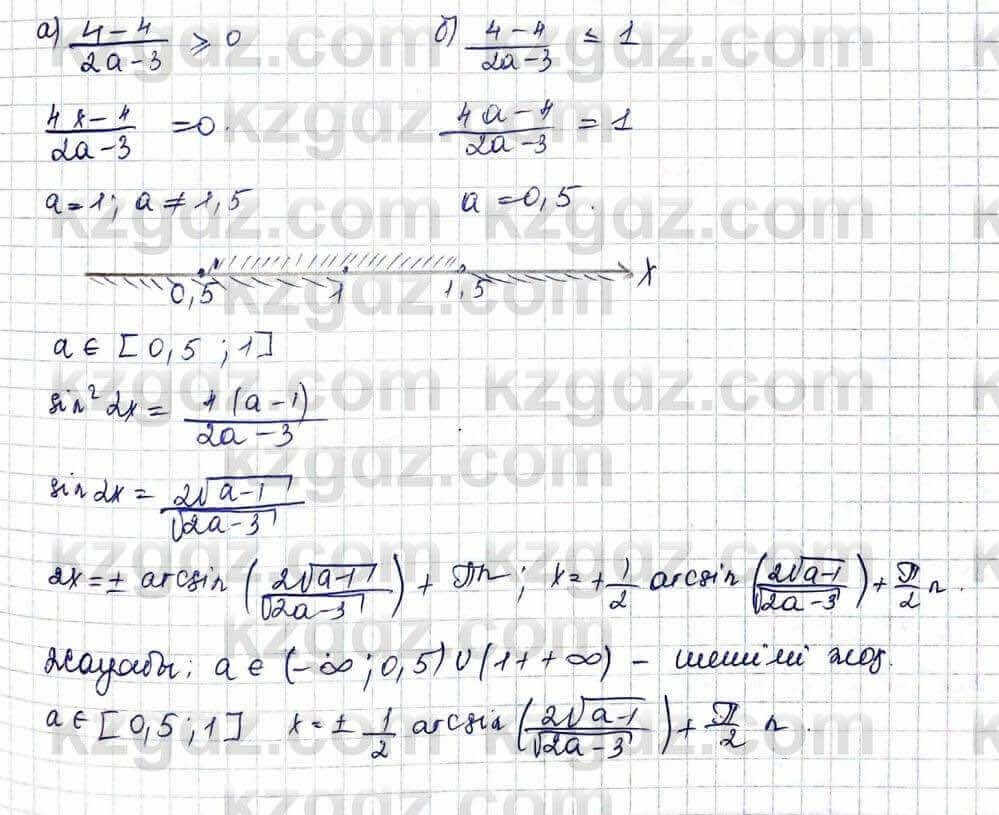 а) (4-4)/(2a-3) ⩾ 0 б) (4-4)/(2a-3) ≤ 1
(4x-4)/(2a-3) =0. (4a-4)/(2a-3) = 1
a=1; a≠1,5 a=0,5.
0,5 1 1,5 x
a ∈ [0,5 ; 1]
sin² 2x = 4(a-1)/(2a-3)
sin 2x = 2√(a-1)/√(2a-3)
2x = ± arcsin (2√(a-1)/√(2a-3)) + πn; x = ± 1/2 arcsin (2√(a-1)/√(2a-3)) + π/2 n.
жауабы: a ∈ (-∞; 0,5) ∪ (1; +∞) - шешімі жоқ.
a ∈ [0,5; 1] x = ± 1/2 arcsin (2√(a-1)/√(2a-3)) + π/2 n.
kzgdz.com